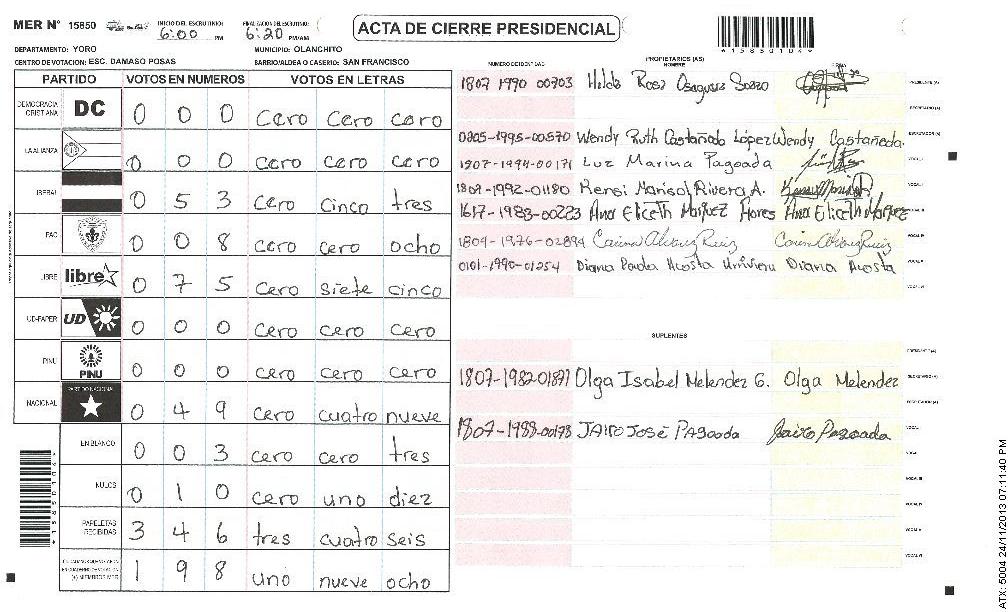 MER N° 15850 INICIO DEL ESCRUTINIO: 6:00 PM FINALIZACION DEL ESCRUTINIO: 6:20 PM/AM
ACTA DE CIERRE PRESIDENCIAL
*15850104*
DEPARTAMENTO: YORO MUNICIPIO: OLANCHITO
CENTRO DE VOTACION: ESC. DAMASO POSAS BARRIO/ALDEA O CASERIO: SAN FRANCISCO
PARTIDO VOTOS EN NUMEROS VOTOS EN LETRAS
DEMOCRACIA CRISTIANA DC 0 0 0 cero cero cero
LA ALIANZA 0 0 0 cero cero cero
LIBERAL 0 5 3 cero cinco tres
PAC 0 0 8 cero cero ocho
LIBRE libre 0 7 5 cero siete cinco
UD-FAPER UD 0 0 0 cero cero cero
PINU PINU 0 0 0 cero cero cero
NACIONAL PARTIDO NACIONAL 0 4 9 cero cuatro nueve
EN BLANCO 0 0 3 cero cero tres
NULOS 0 1 0 cero uno diez
PAPELETAS RECIBIDAS 3 4 6 tres cuatro seis
(+) MIEMBROS MER 1 9 8 uno nueve ocho
PROPIETARIOS (AS)
NUMERO DE IDENTIDAD NOMBRE FIRMA
1807 1990 00703 Hilda Rosa PRESIDENTE (A)
SECRETARIO (A)
0205-1995-00570 Wendy Ruth Castañeda López Wendy Castañeda. ESCRUTADOR (A)
1807-1994-00171 Luz Marina Pagoada VOCAL I
1807-1992-01180 Kensi Marisol Rivera A. VOCAL II
1617-1983-00223 Ana Eliceth Marquez Flores Ana Eliceth Marquez VOCAL III
1804-1976-02894 VOCAL IV
0101-1990-01254 Diana Paola Acosta Diana Acosta VOCAL V
VOCAL VI
SUPLENTES
PRESIDENTE (A)
1807-1982-01871 Olga Isabel Melendez G. Olga Melendez SECRETARIO (A)
ESCRUTADOR (A)
1807-1988-00178 JAIRO JOSÉ PAGOADA Jairo Pagoada VOCAL I
VOCAL II
VOCAL III
VOCAL IV
VOCAL V
VOCAL VI
ATX: 5004 24/11/2013 07:11:40 PM